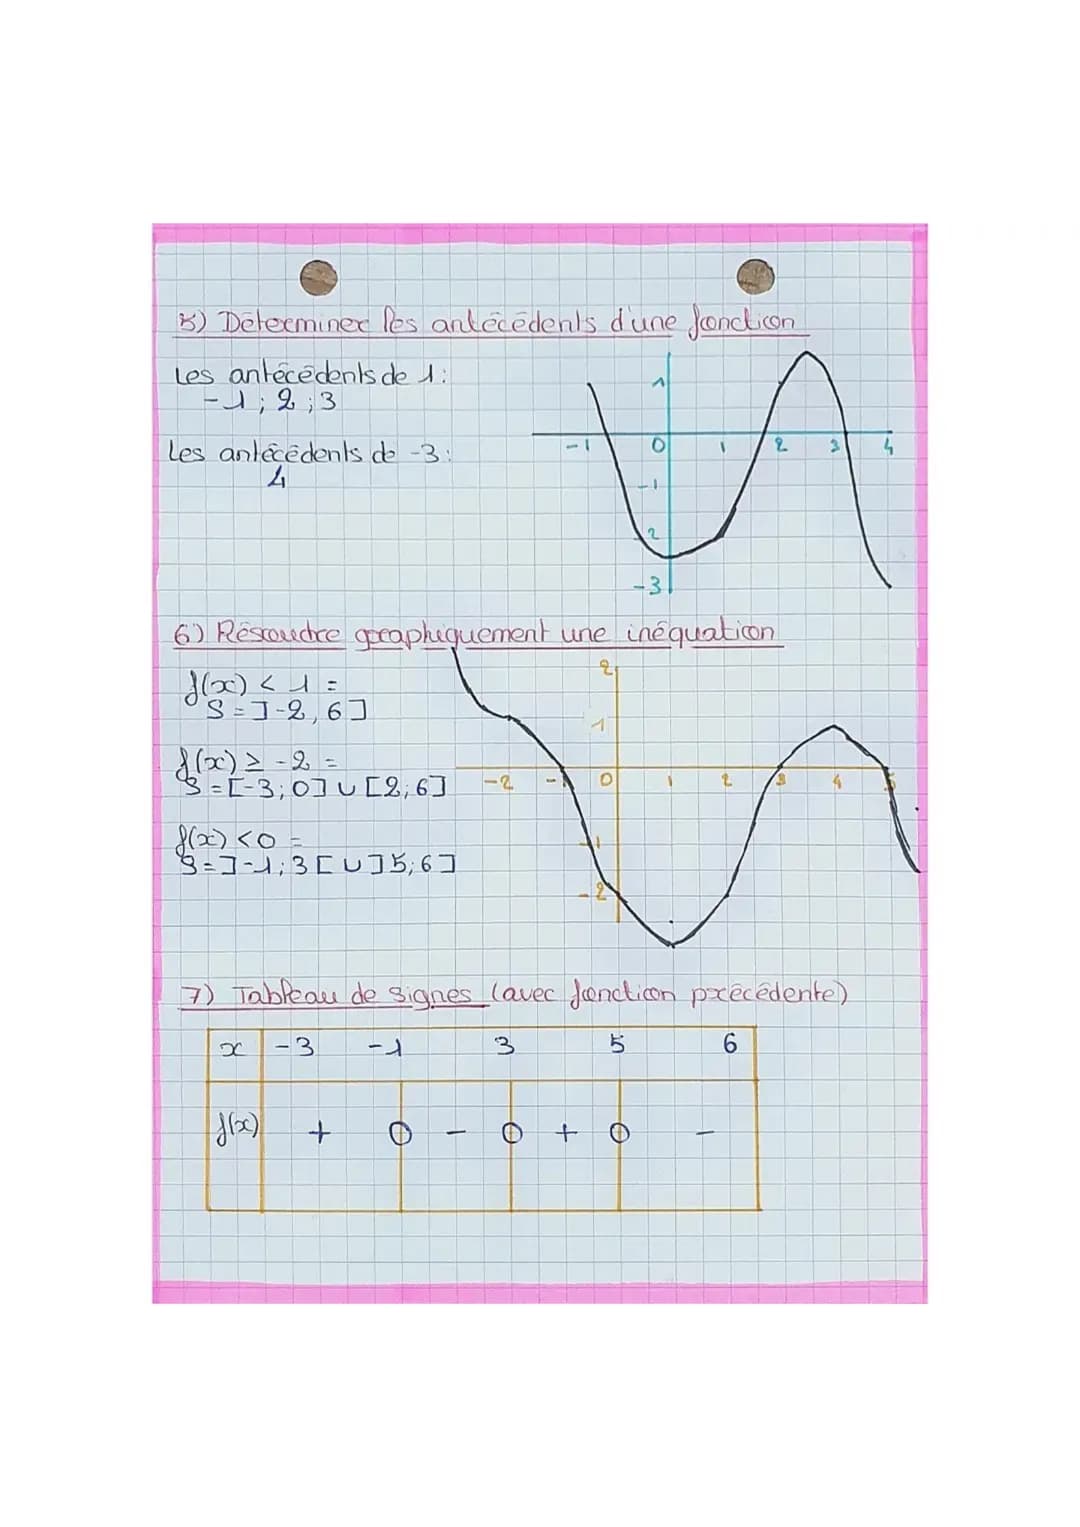 5) Déterminer les antécédents d'une fonction
Les antécédents de 1:
-1; 2; 3
Les antécédents de -3:
4
1
-1 0 1 2 3 4
-1
2
-3
6) Résoudre graphiquement une inéquation
f(x) < 1 =
S = ]-2, 6]
f(x) ≥ -2 =
S = [-3; 0] ∪ [2; 6]
f(x) < 0 =
S = ]-1; 3[ ∪ ]5; 6]
2
1
-2 -1 0 1 2 3 4 5
-1
-2
7) Tableau de signes (avec fonction précédente)
x -3 -1 3 5 6
f(x) + 0 - 0 + 0 -